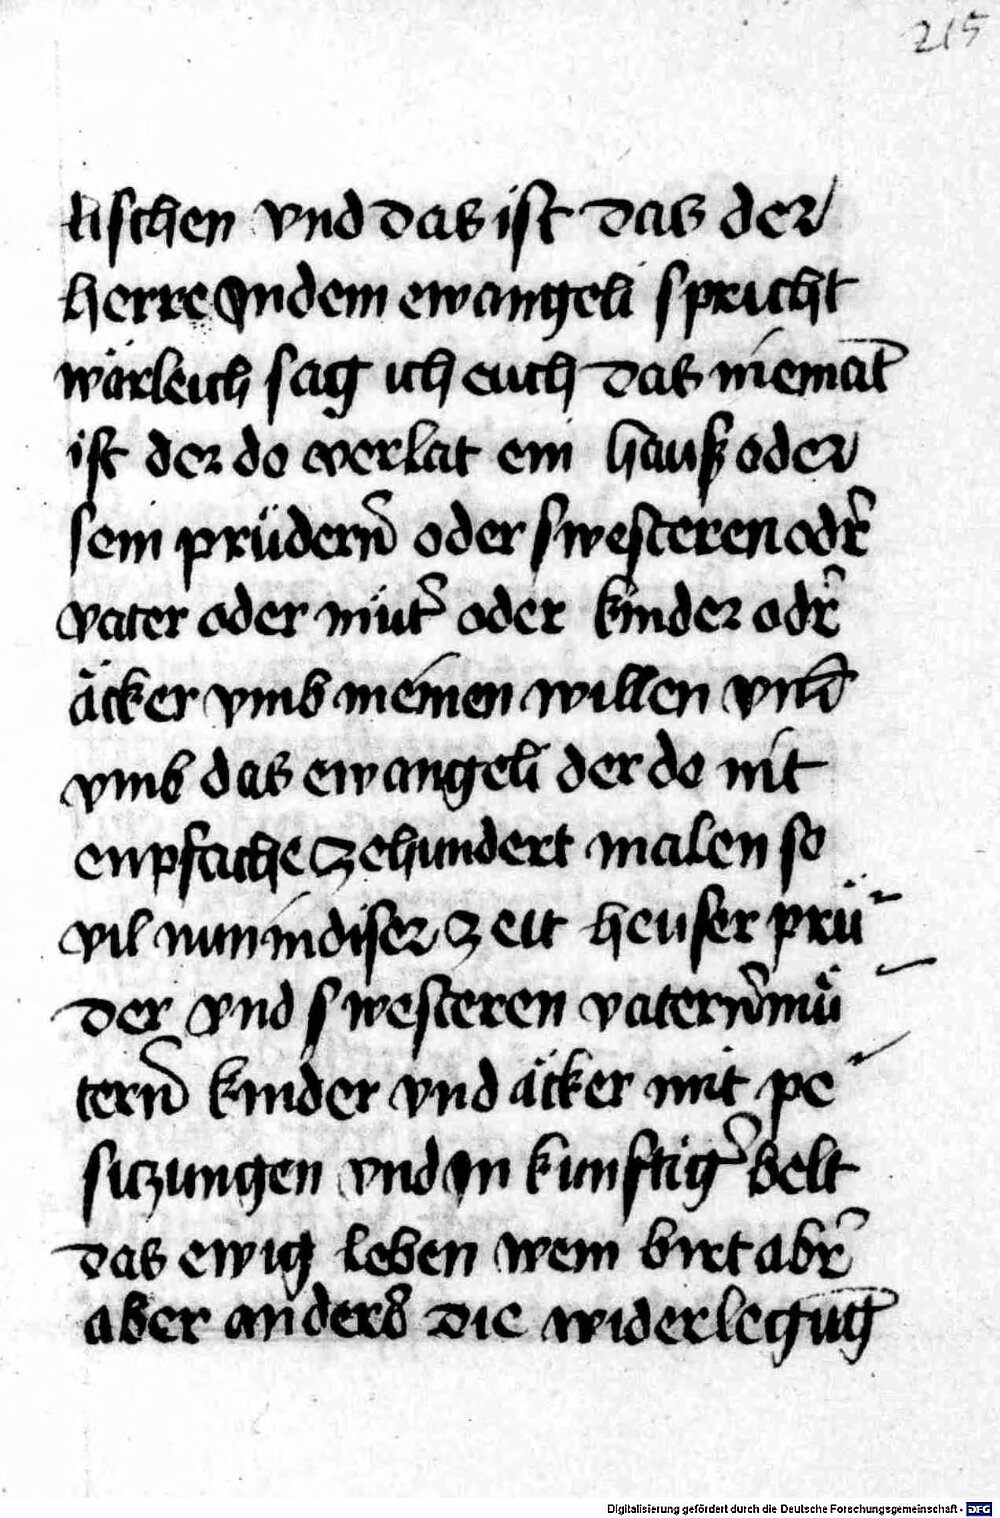 215
lischen vnd das ist das der
herre Jndem ewangeli spricht
wärleich sag ich euch das niemāt
ist der do verlat ein hauß oder
sein prüdern̄ oder swesteren odr̄
vater oder mut̄ oder kinder odr̄
äcker vmb meinen willen vnd̄
vmb das ewangeli der do nit
enpfache zehundert malen so
vil nun in diser zeit heuser prü
der vnd swesteren vater vn̄ mü
tern̄ kinder vnd äcker mit pe
sitzungen vnd Jn kunftiḡ belt
das ewig leben wem birt abr̄
aber anders die widerlegūg
Digitalisierung gefördert durch die Deutsche Forschungsgemeinschaft - DFG